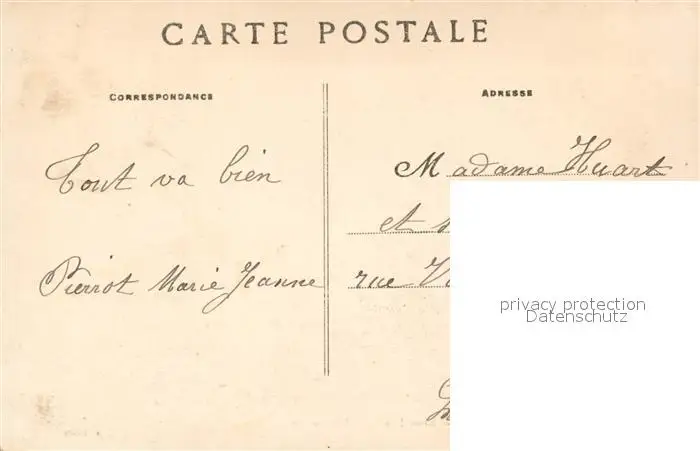 CARTE POSTALE
CORRESPONDANCE
ADRESSE
Tout va bien
Pierrot Marie Jeanne
Madame Huart
et
rue
privacy protection
Datenschutz